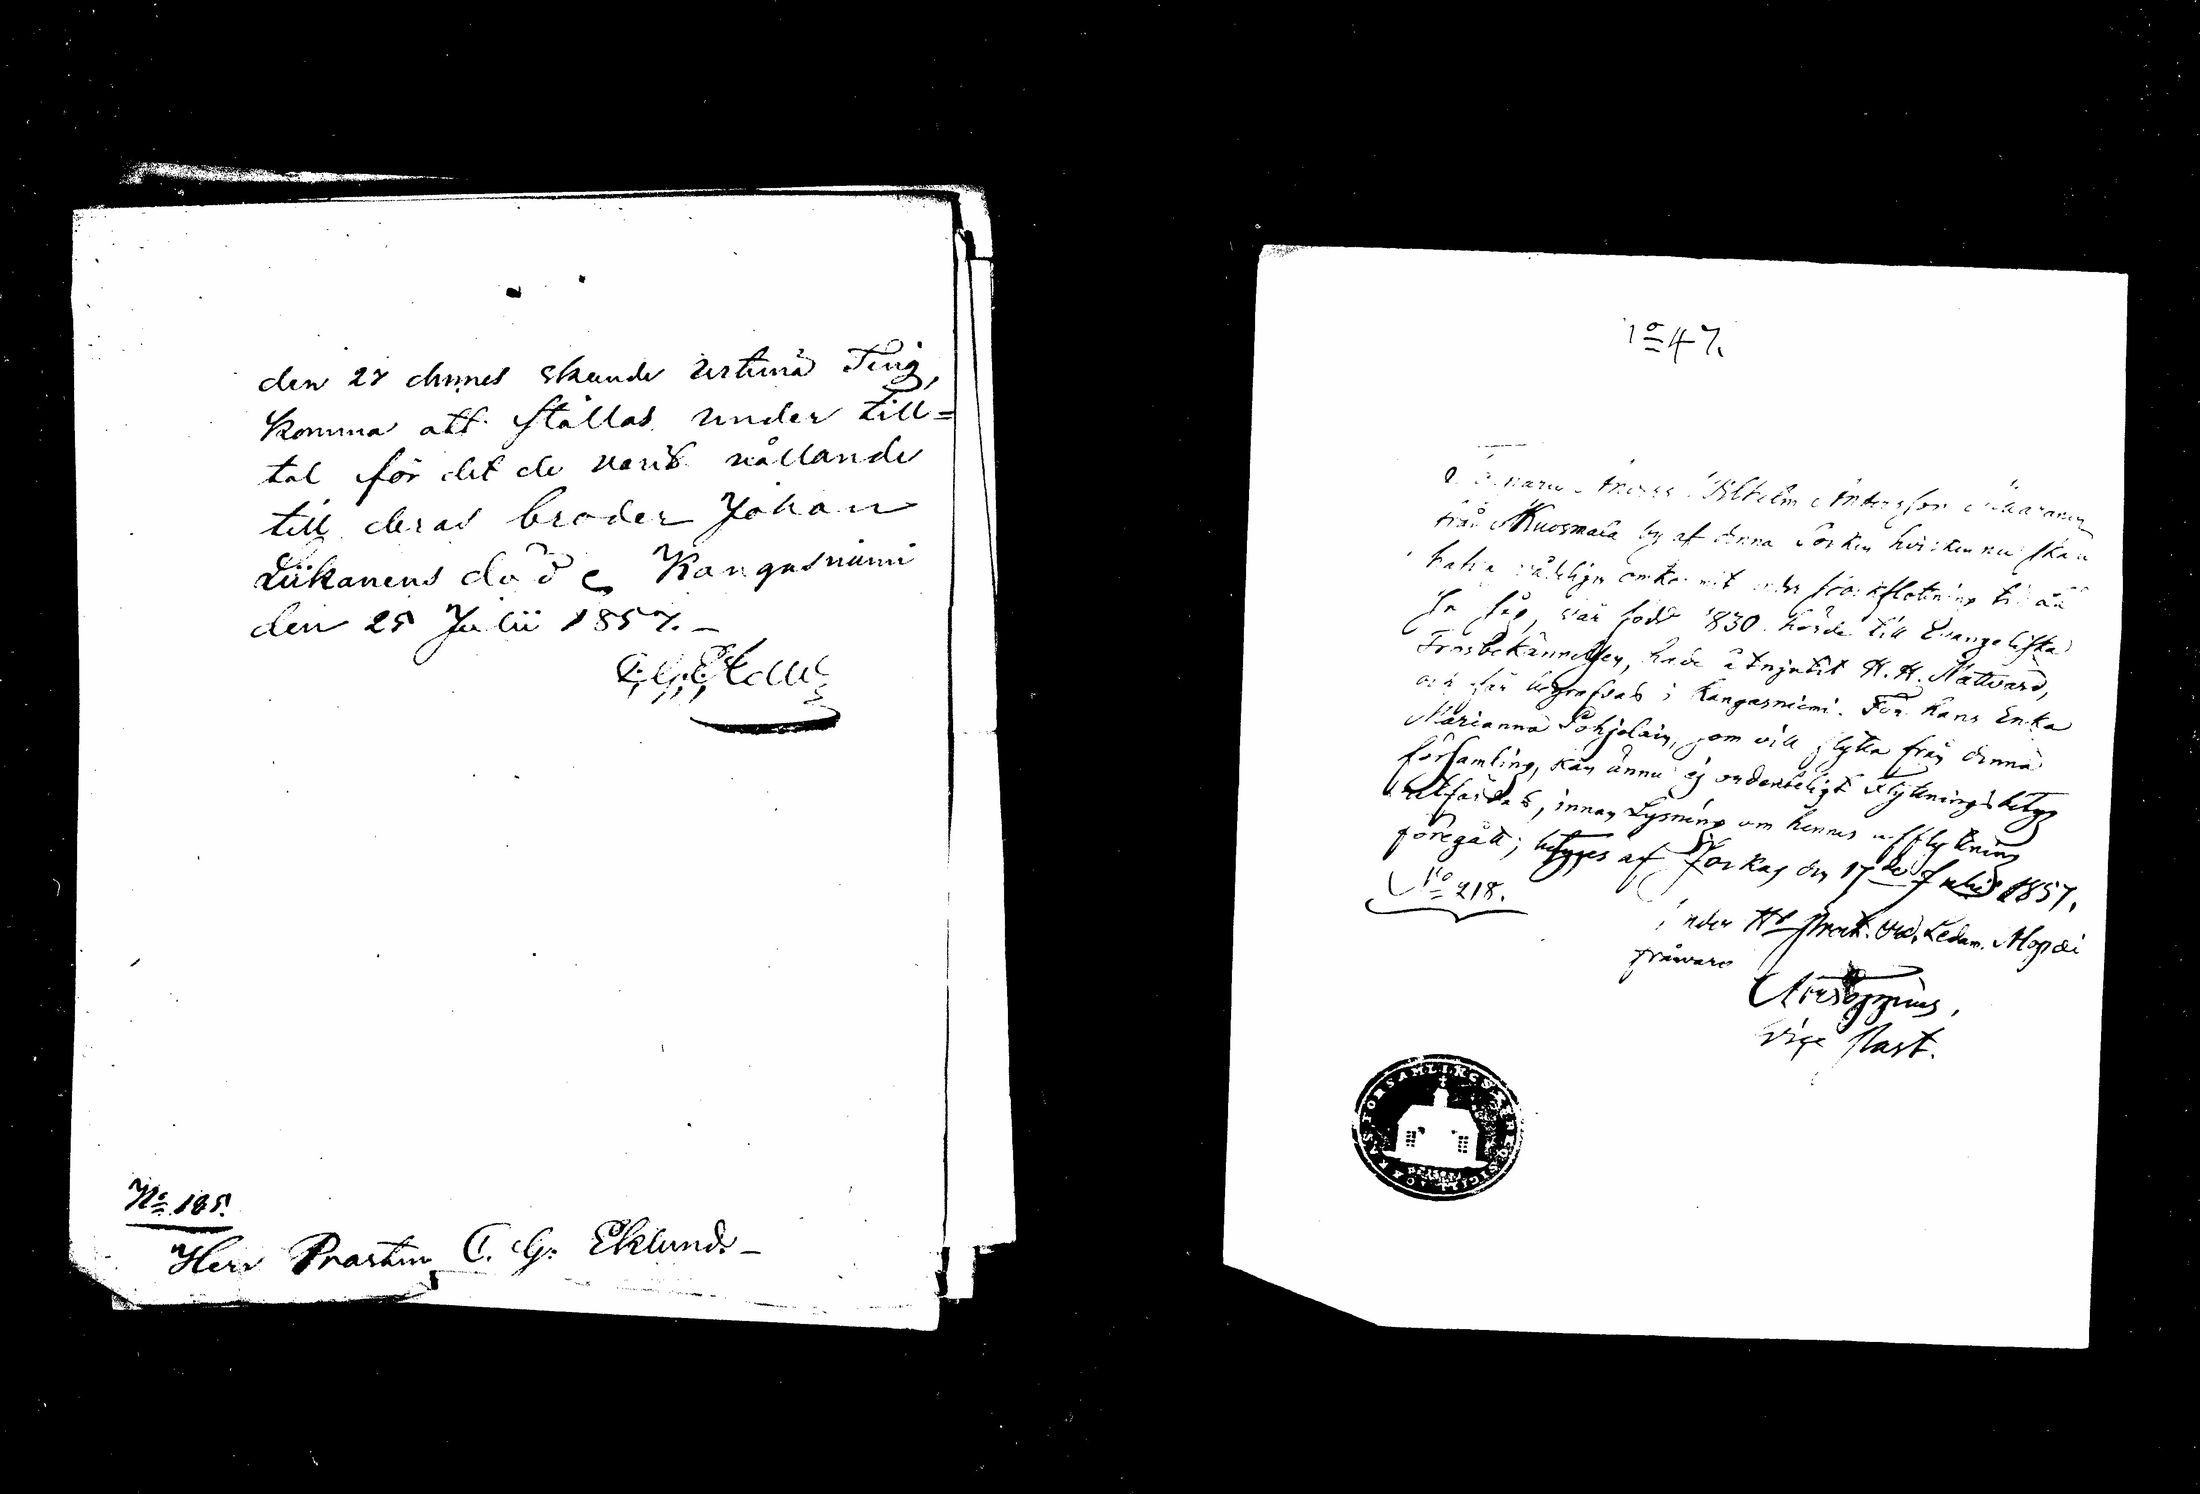 den 28 dennes skeende Urtima Ting,
komma att ställas under till=
tal för det de varit vållande
till deras broder Johan
Liikanens död. Kangasniemi
den 25 Julii 1857. –
C. G. Eklund
No 185.
Herr Prosten C. G. Eklund. –
No 47.
Wilhelm Andersson
från Kuosmala by af denna Socken hvilken nu skall
hafva omkommit under stockflotning
var född 1830. hörde till Evangeliska
Trosbekännelsen, hade åtnjutit H. H. Nattvard,
och får begrafvas i Kangasniemi. För hans Enka
Marianna Pohjolain, som vill flytta från denna
församling, kan ännu ej ordenteligt Flyttningsbetyg
utfärdas, innan Lysning om hennes afflyttning
föregått; betyges af Jorkas den 17de Julii 1857.
No 218.
under Hr Prost. Led. Alopæi
frånvaro
Vice Past.